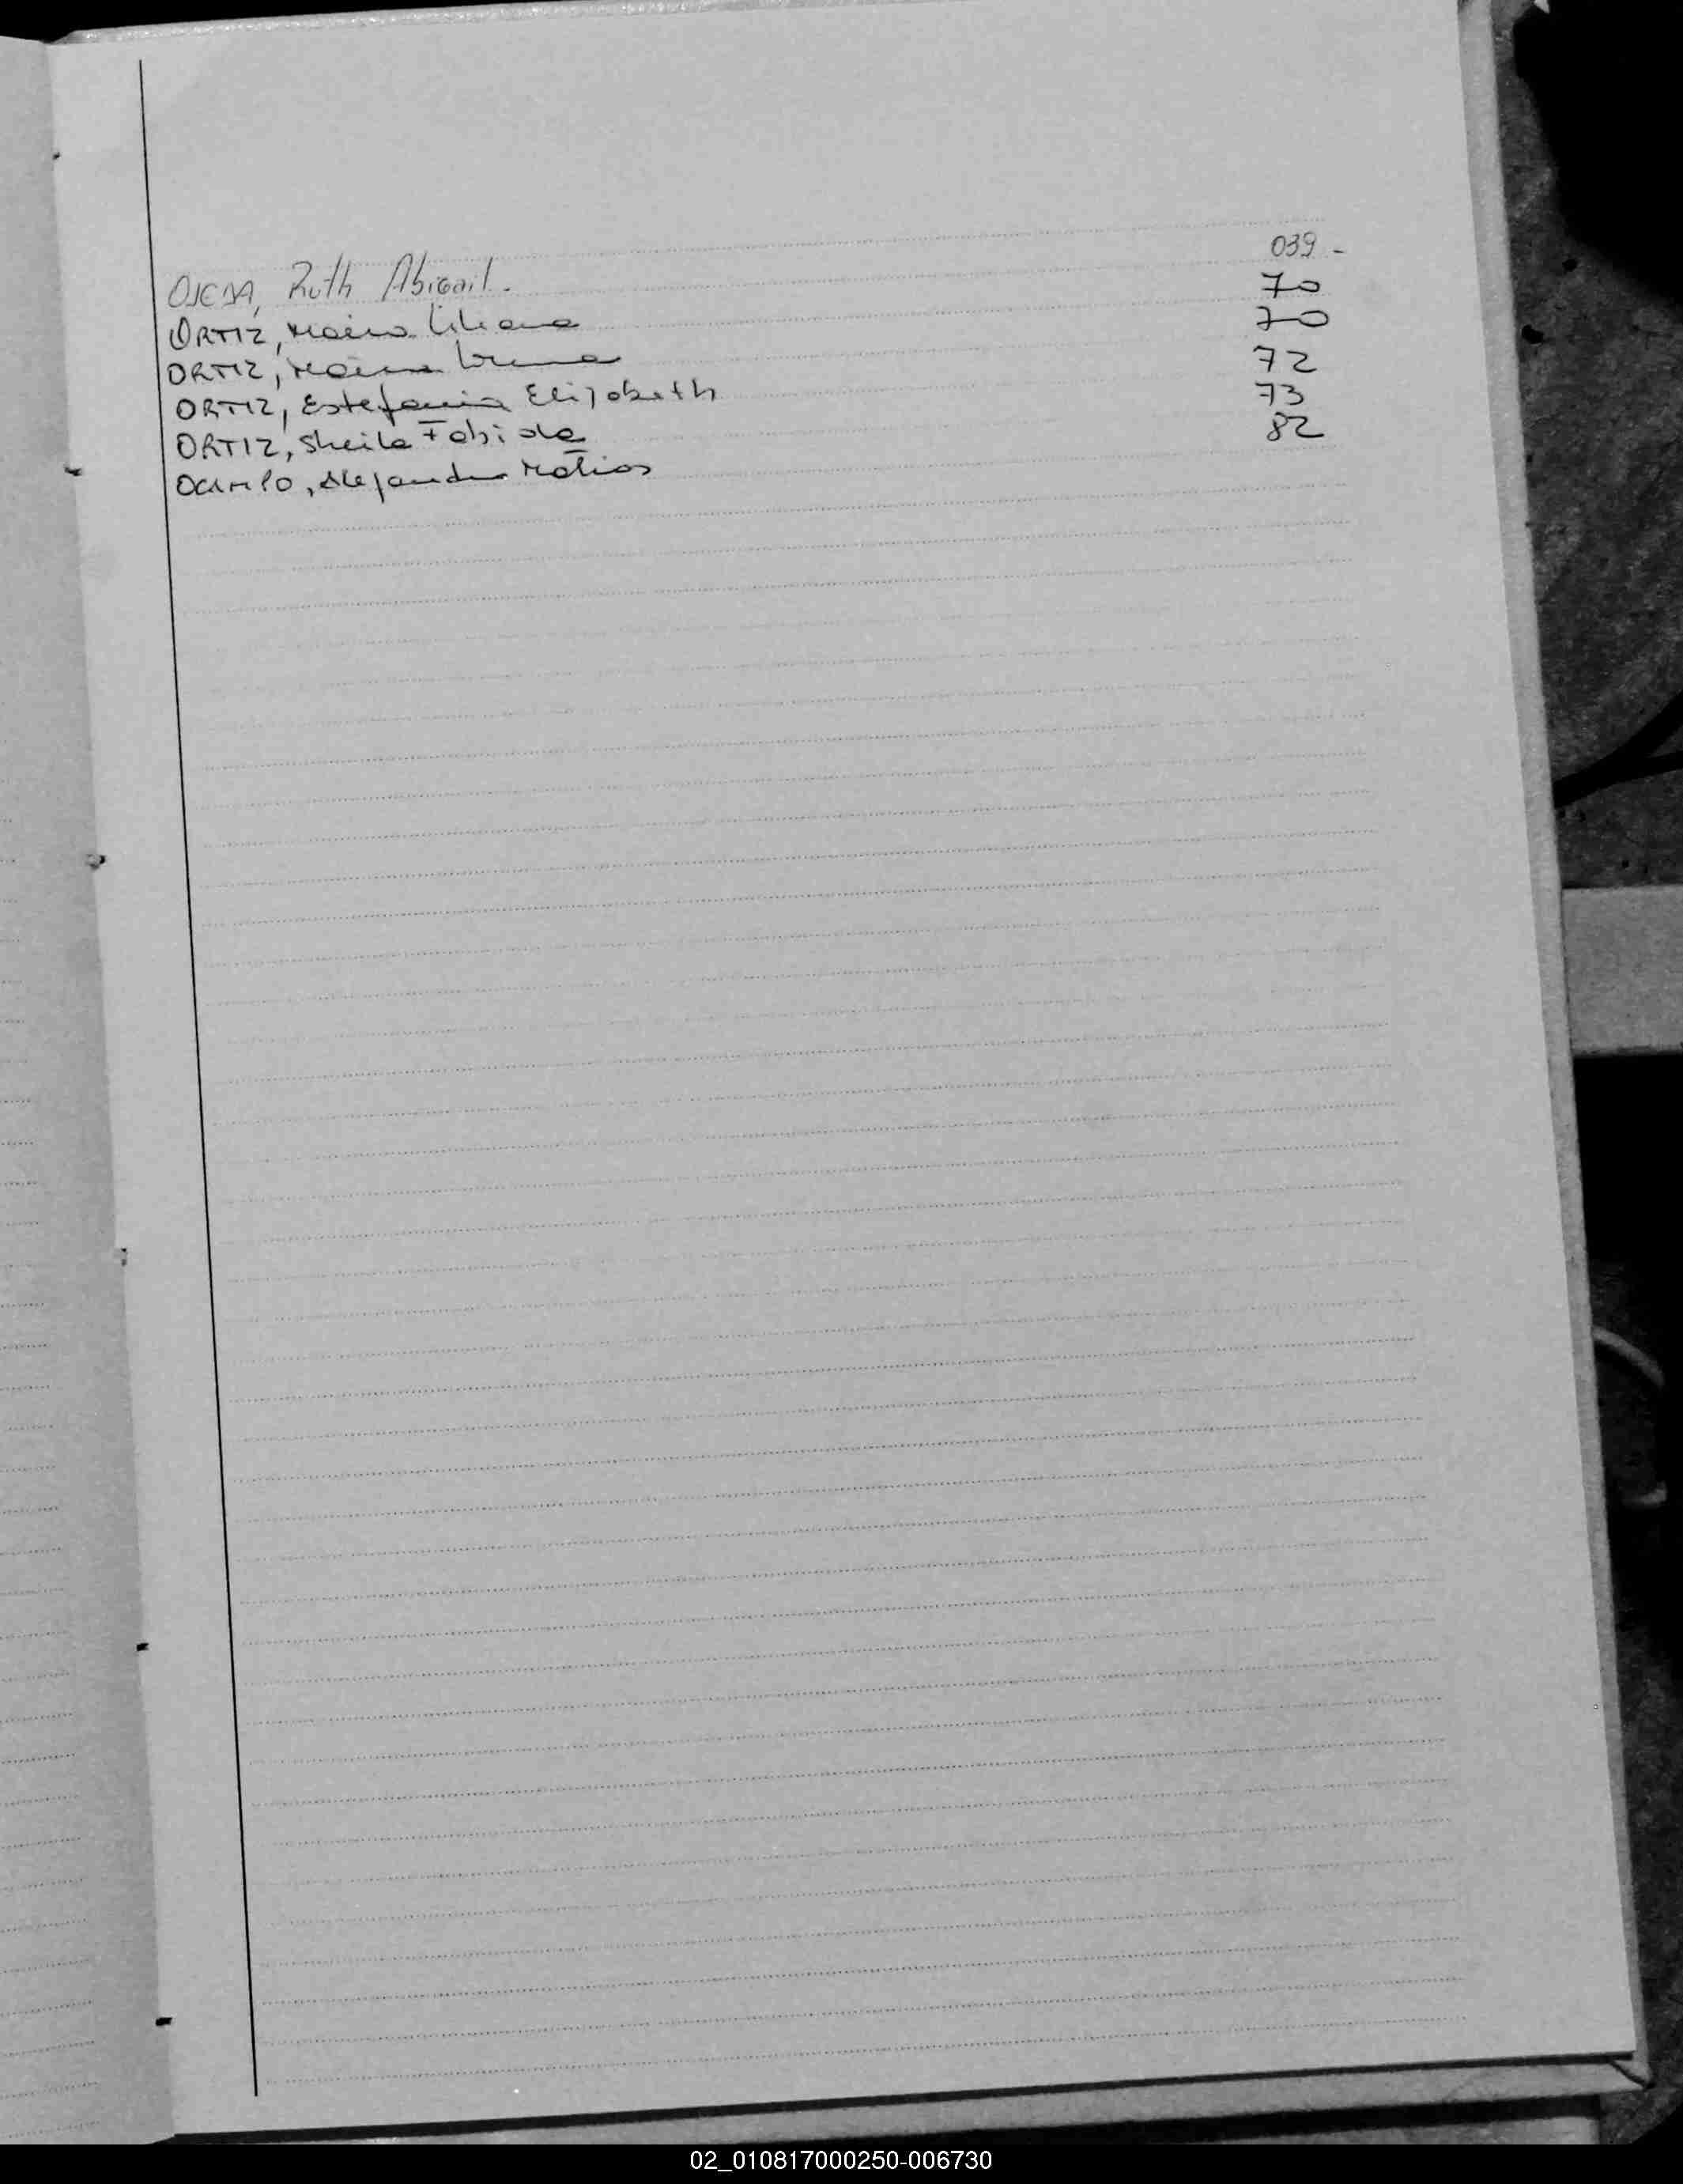 OJEDA, Ruth Abigail. 039 -
ORTIZ, Maira Liliana 70
ORTIZ, Maira 70
ORTIZ, Estefania Elizabeth 72
ORTIZ, Sheila Fabiola 73
OCAMPO, Alejandro Matias 82
02_010817000250-006730